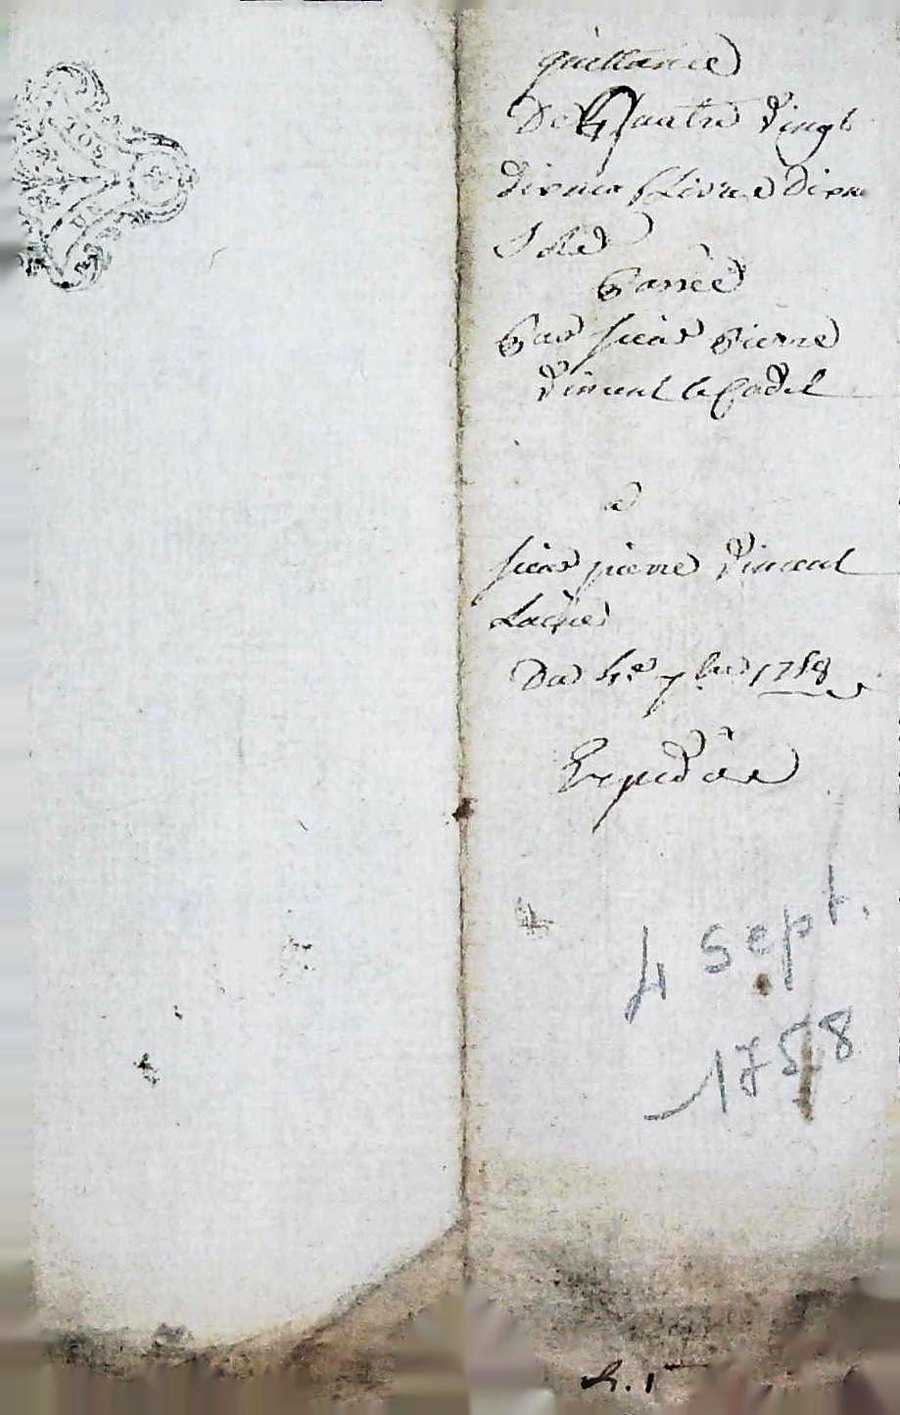 quittance
De quatre vingt
Livre
Sols
Passée
Par sieur pierre
vincent le Cadet
a
sieur pierre vincent
Laîné
Du 4e 7bre 1758
Expédiée
4 sept.
1758